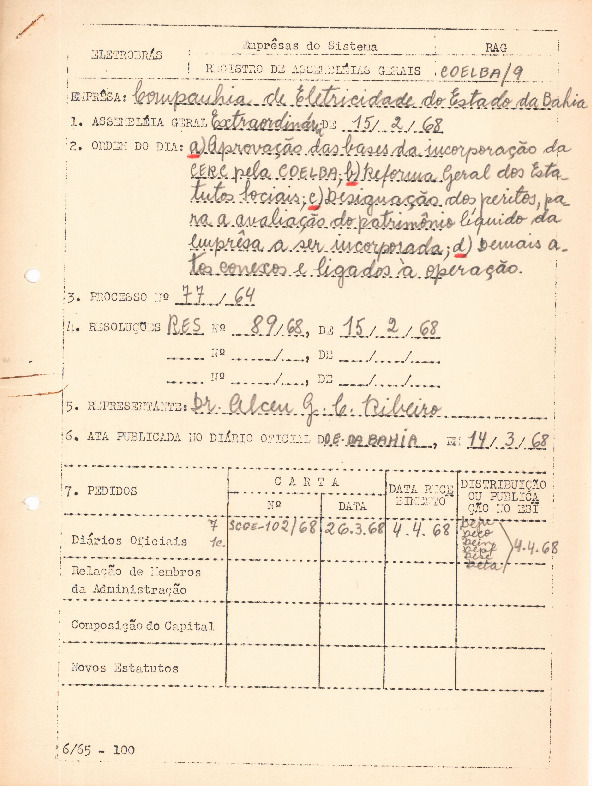 ELETROBRÁS
Emprêsas do Sistema
RAG
REGISTRO DE ASSEMBLÉIAS GERAIS
COELBA/9
EMPRÊSA: Companhia de Eletricidade do Estado da Bahia
1. ASSEMBLÉIA GERAL Extraordinária DE 15/2/68
2. ORDEM DO DIA: a) Aprovação das bases da incorporação da
CERC pela COELBA; b) Reforma Geral dos Esta-
tutos Sociais; c) Designação dos peritos, pa-
ra a avaliação do patrimônio líquido da
emprêsa a ser incorporada; d) Demais a-
tos conexos e ligados à operação.
3. PROCESSO Nº 77/64
4. RESOLUÇÕES RES Nº 89/68, DE 15/2/68
Nº / , DE / /
Nº / , DE / /
5. REPRESENTANTE: Dr. Alceu G. C. Ribeiro
6. ATA PUBLICADA NO DIÁRIO OFICIAL DO E. DA BAHIA, EM 14/3/68
7. PEDIDOS
CARTA
Nº
DATA
DATA RECE
BIMENTO
DISTRIBUIÇÃO
OU PUBLICA
ÇÃO NO EBI
Diários Oficiais
7
1c.
SCOE-102/68
26.3.68
4.4.68
4.4.68
Relação de Membros
da Administração
Composição do Capital
Novos Estatutos
6/65 - 100